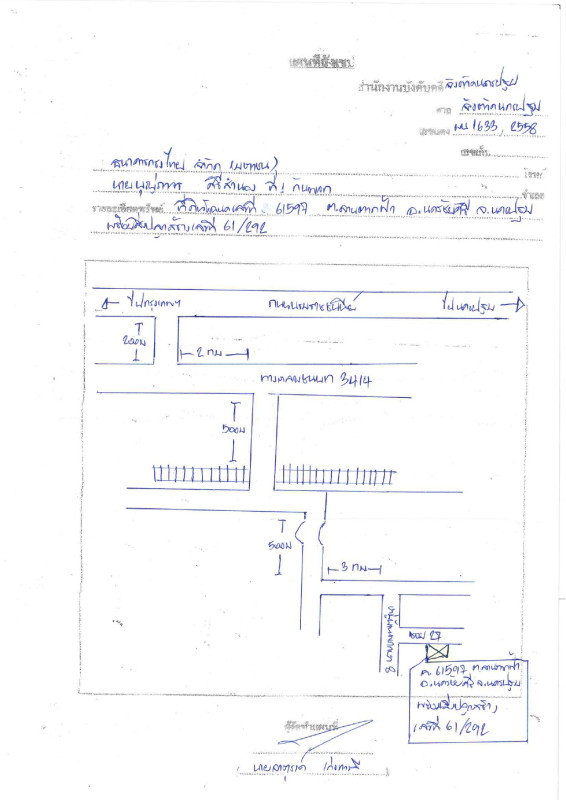 แผนที่สังเขป
สำนักงานบังคับคดี จังหวัดนครปฐม
ศาล จังหวัดนครปฐม
เลขแดง ผบ 1633 / 2558
เลขเก็บ
ธนาคารกรุงไทย จำกัด (มหาชน) โจทก์
นาย จำเลย
รายละเอียดทรัพย์ ที่ดินโฉนดเลขที่ 61597 ต.ลานตากฟ้า อ.นครชัยศรี จ.นครปฐม
พร้อมสิ่งปลูกสร้างเลขที่ 61/292
ไปกรุงเทพฯ ถนนบรมราชชนนี ไปนครปฐม
200ม 2 กม
ทางหลวงชนบท 3414
500ม
500ม
3 กม
ซอย 27
ฉ. 61597 ต.ลานตากฟ้า
อ.นครชัยศรี จ.นครปฐม
พร้อมสิ่งปลูกสร้าง
เลขที่ 61/292
ผู้จัดทำแผนที่